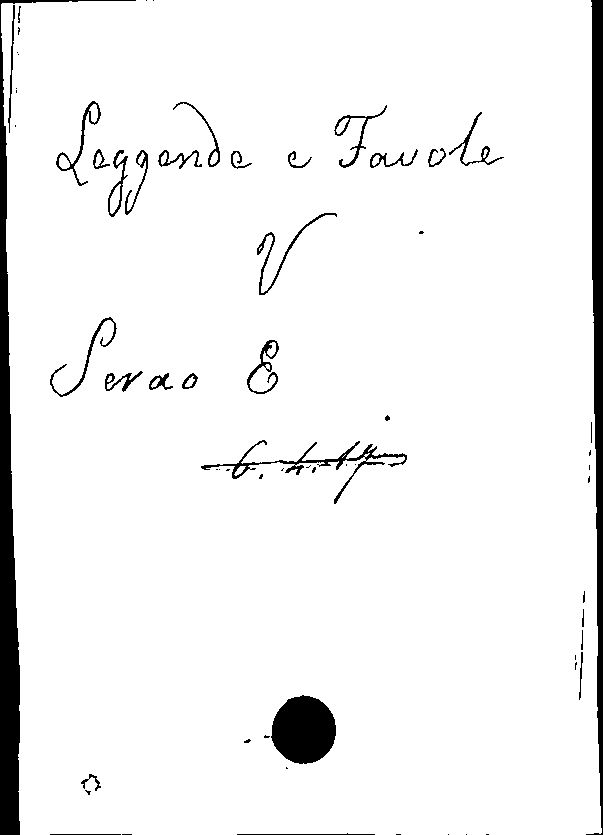 Leggende e Favole
V
Serao E
6. 4. 17